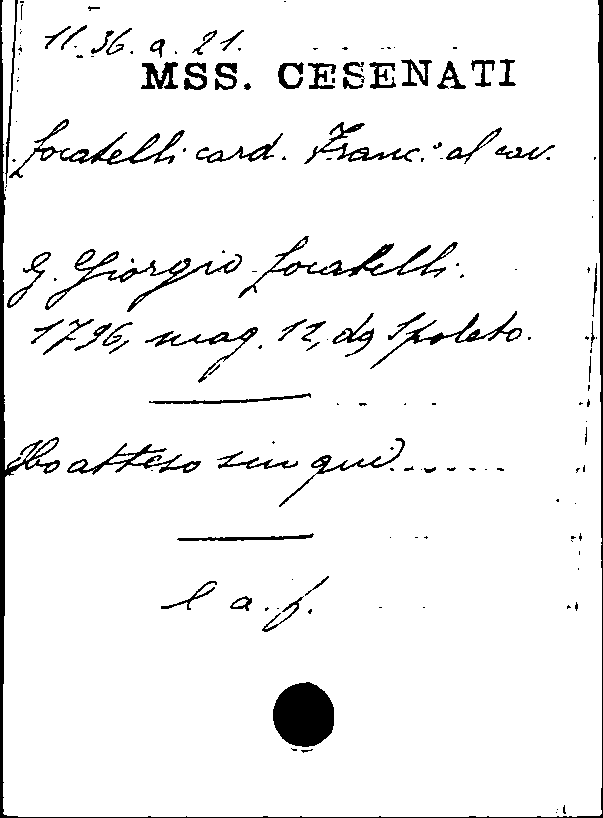 11. 36. a. 21.
MSS. CESENATI
Locatelli card. Franc.º al cav.
G. Giorgio Locatelli.
1796, mag. 12, da Spoleto.
Ho atteso sin qui.......
l a. f.